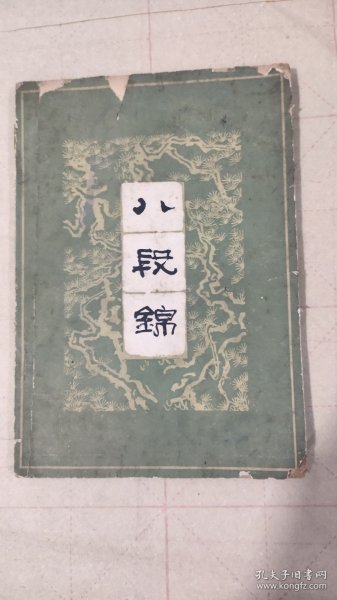 八
段
錦
孔夫子旧书网
www.kongfz.com